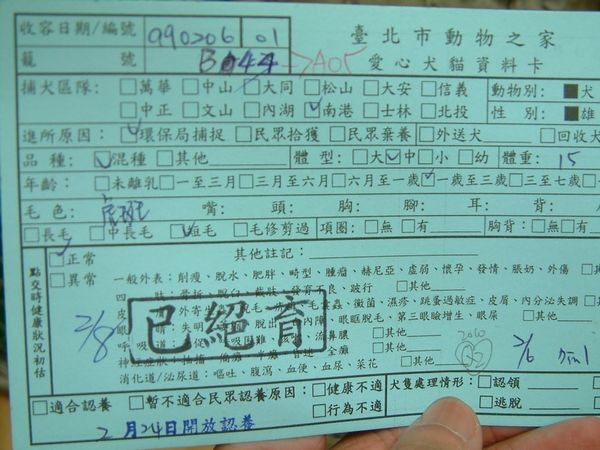 收容日期/編號 990206 01 臺北市動物之家
籠 號 B044→A05 愛心犬貓資料卡
捕犬區隊: □萬華 □中山 □大同 □松山 □大安 □信義 動物別: ■犬
□中正 □文山 □內湖 ☑南港 □士林 □北投 性 別: ■雄
進所原因: ☑環保局捕捉 □民眾拾獲 □民眾棄養 □外送犬 □回收犬
品 種: ☑混種 □其他 體 型: □大 ☑中 □小 □幼 體重: 15
年齡: □未離乳 □一至三月 □三月至六月 □六月至一歲 ☑一歲至三歲 □三至七歲
毛 色: 虎斑 嘴: 頭: 胸: 腳: 耳: 背:
□長毛 □中長毛 ☑短毛 □毛修剪過 項圈: □無 □有 胸背: □無
點交時健康狀況初估
☑正常 其他註記:
□異常 一般外表: 削瘦、脫水、肥胖、畸型、腫瘤、赫尼亞、虛弱、懷孕、發情、脹奶、外傷
四 肢: 骨折、脫臼、截肢、發育不良、跛行
皮 膚: 外寄生 毛囊蟲、黴菌、濕疹、跳蚤過敏症、皮屑、內分泌失調
眼 睛: 失明、 脫出、白內障、眼眶脫毛、第三眼瞼增生、眼屎
呼 吸 道: 流鼻膿 □其他
神經症狀: 抽搐、 全癱 □其他
消化道/泌尿道: 嘔吐、腹瀉、血便、血尿、菜花 □其他
已絕育
2/8
2010
2/6
□適合認養 □暫不適合民眾認養原因: □健康不適 犬隻處理情形: □認領
□行為不適 □逃脫
2月24日開放認養